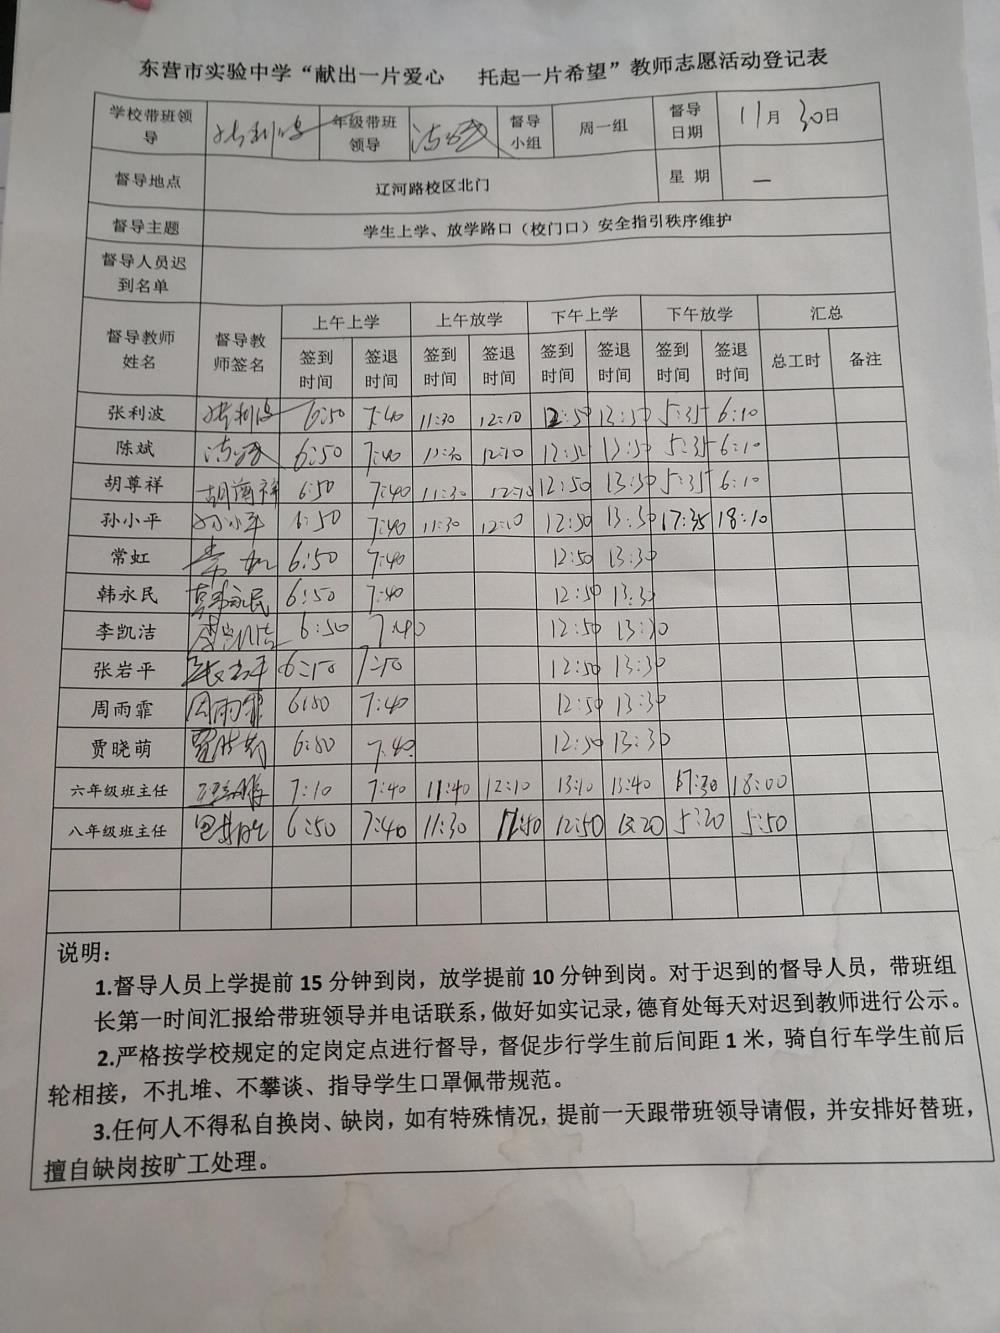 东营市实验中学“献出一片爱心 托起一片希望”教师志愿活动登记表
学校带班领导 张利波 年级带班领导 陈斌 督导小组 周一组 督导日期 11月30日
督导地点 辽河路校区北门 星期 一
督导主题 学生上学、放学路口（校门口）安全指引秩序维护
督导人员迟到名单
督导教师姓名 督导教师签名 上午上学 上午放学 下午上学 下午放学 汇总
签到时间 签退时间 签到时间 签退时间 签到时间 签退时间 签到时间 签退时间 总工时 备注
张利波 张利波 6:50 7:40 11:30 12:10 12:50 13:50 5:35 6:10
陈斌 陈斌 6:50 7:40 11:30 12:10 12:50 13:50 5:35 6:10
胡尊祥 胡尊祥 6:50 7:40 11:30 12:10 12:50 13:30 5:35 6:10
孙小平 孙小平 6:50 7:40 11:30 12:10 12:50 13:30 17:35 18:10
常虹 常虹 6:50 7:40 12:50 13:30
韩永民 韩永民 6:50 7:40 12:50 13:30
李凯洁 李凯洁 6:50 7:40 12:50 13:30
张岩平 张岩平 6:50 7:50 12:50 13:30
周雨霏 周雨霏 6:50 7:40 12:50 13:30
贾晓萌 贾晓萌 6:50 7:40 12:50 13:30
六年级班主任 7:10 7:40 11:40 12:10 13:10 13:40 17:30 18:00
八年级班主任 6:50 7:40 11:30 11:40 12:50 13:20 5:20 5:50
说明：
1.督导人员上学提前 15 分钟到岗，放学提前 10 分钟到岗。对于迟到的督导人员，带班组
长第一时间汇报给带班领导并电话联系，做好如实记录，德育处每天对迟到教师进行公示。
2.严格按学校规定的定岗定点进行督导，督促步行学生前后间距 1 米，骑自行车学生前后
轮相接，不扎堆、不攀谈、指导学生口罩佩带规范。
3.任何人不得私自换岗、缺岗，如有特殊情况，提前一天跟带班领导请假，并安排好替班，
擅自缺岗按旷工处理。